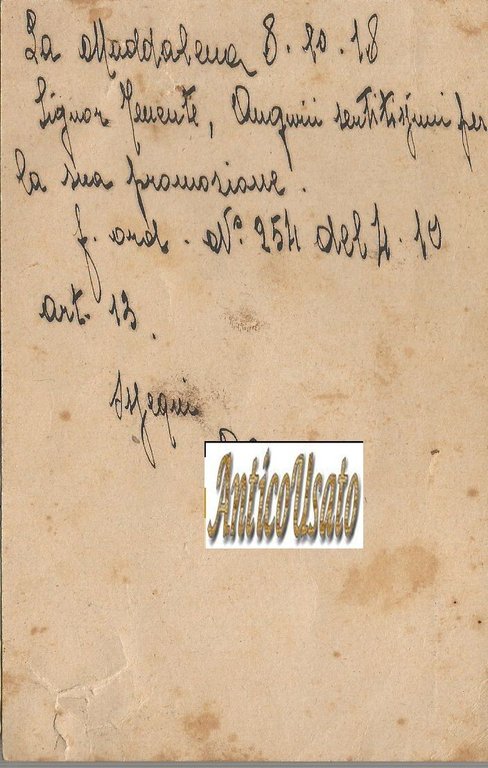 La Maddalena 8. 10. 18
Signor Tenente, Auguri sentitissimi per
la sua promozione.
f. ord. N° 254 del 4. 10
art. 13.
Ossequi
AnticoUsato